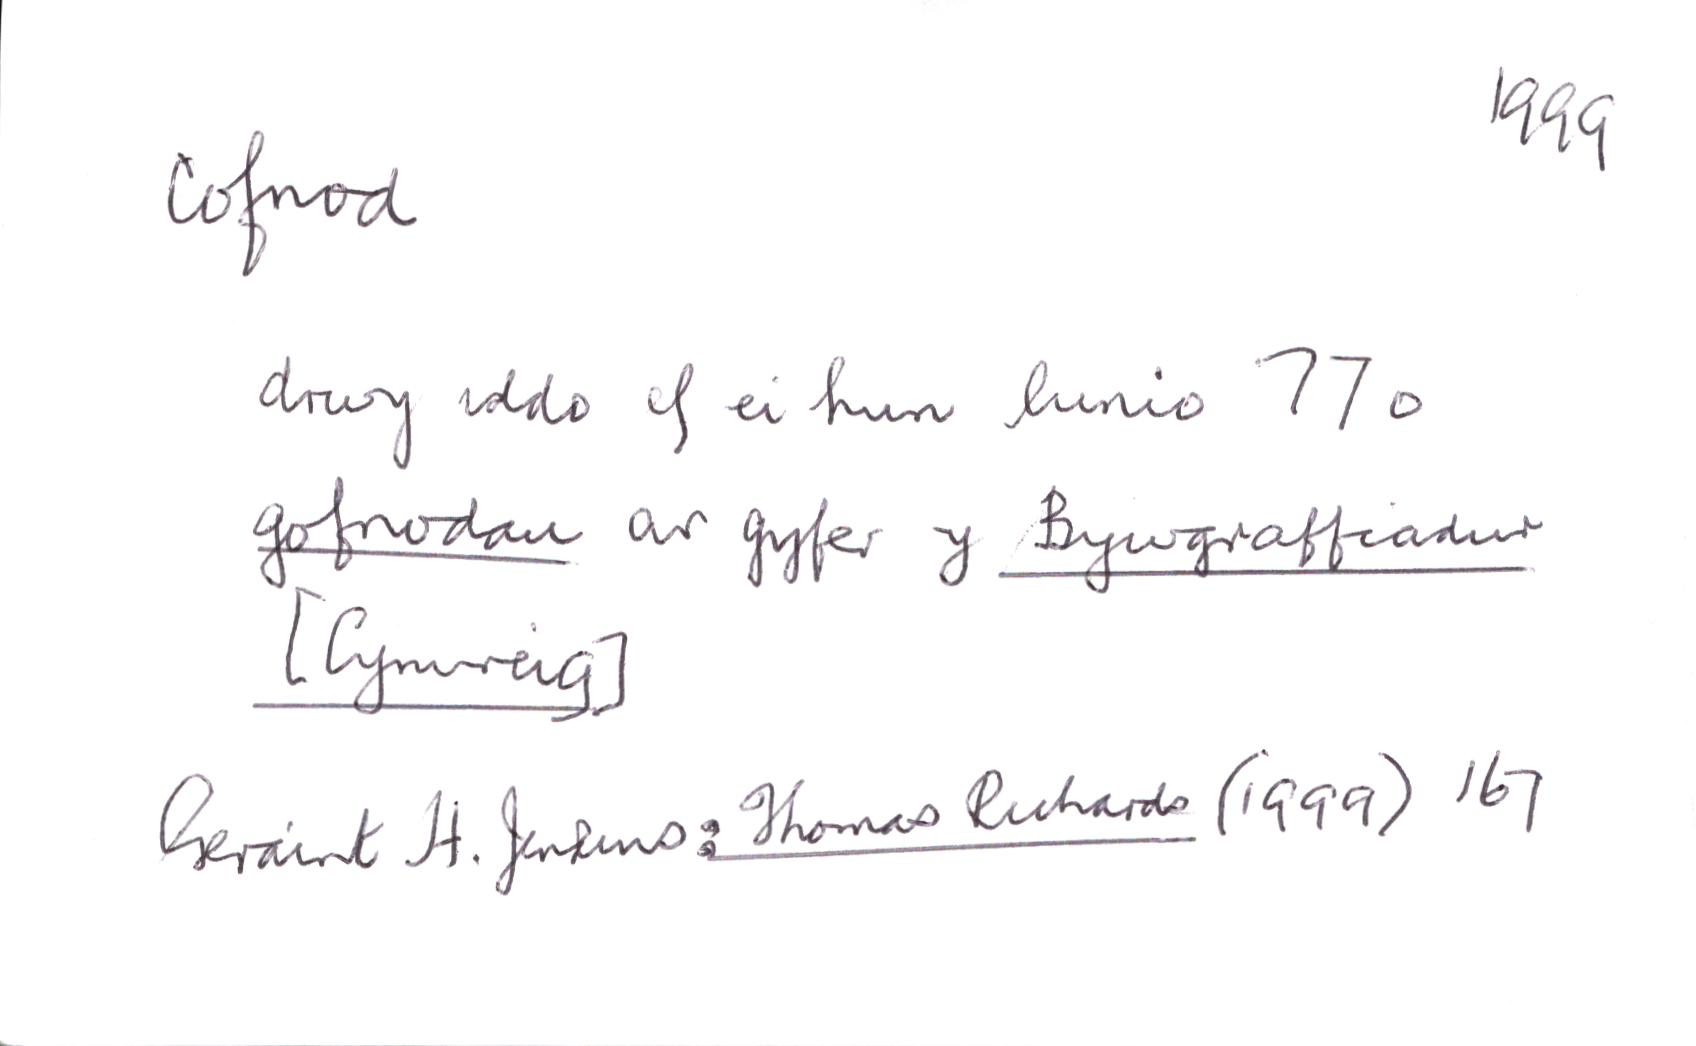 1999
Cofnod
drwy iddo ef ei hun lunio 770
gofnodau ar gyfer y Bywgraffiadur
[Cymreig]
Geraint H. Jenkins: Thomas Richards (1999) 167